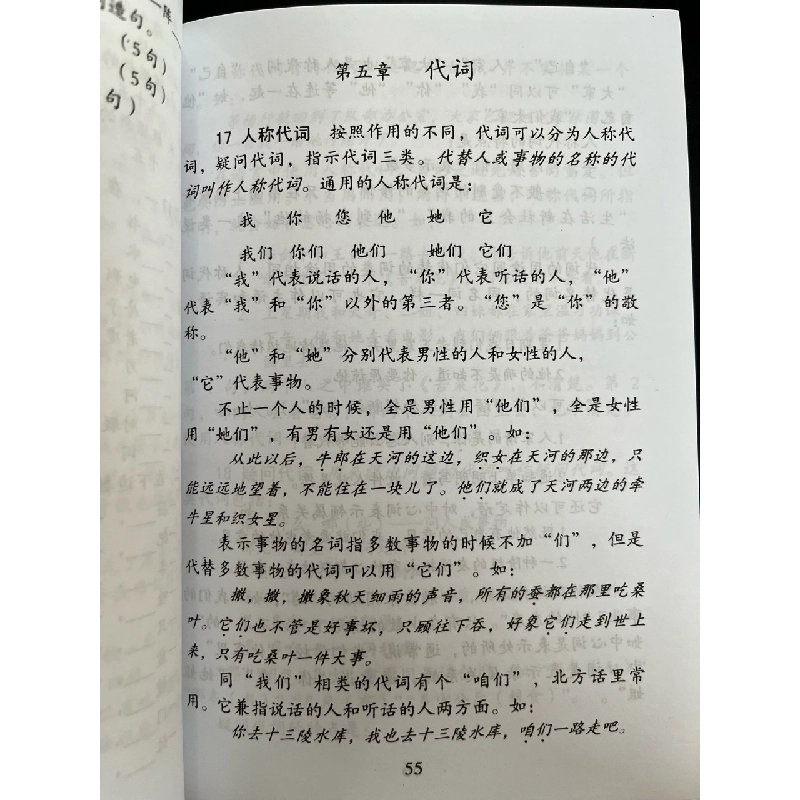 阵
造句。
(5句)
(5句)
句)
第五章 代词
17 人称代词 按照作用的不同,代词可以分为人称代
词,疑问代词,指示代词三类。代替人或事物的名称的代
词叫作人称代词。通用的人称代词是:
我 你 您 他 她 它
我们 你们 他们 她们 它们
“我”代表说话的人,“你”代表听话的人,“他”
代表“我”和“你”以外的第三者。“您”是“你”的敬
称。
“他”和“她”分别代表男性的人和女性的人,
“它”代表事物。
不止一个人的时候,全是男性用“他们”,全是女性
用“她们”,有男有女还是用“他们”。如:
从此以后,牛郎在天河的这边,织女在天河的那边,只
能远远地望着,不能住在一块儿了。他们就成了天河两边的牵
牛星和织女星。
表示事物的名词指多数事物的时候不加“们”,但是
代替多数事物的代词可以用“它们”。如:
撒,撒,撒象秋天细雨的声音,所有的蚕都在那里吃桑
叶。它们也不管是好事坏,只顾往下吞,好象它们走到世上
来,只有吃桑叶一件大事。
同“我们”相类的代词有个“咱们”,北方话里常
用。它兼指说话的人和听话的人两方面。如:
你去十三陵水库,我也去十三陵水库,咱们一路走吧。
55